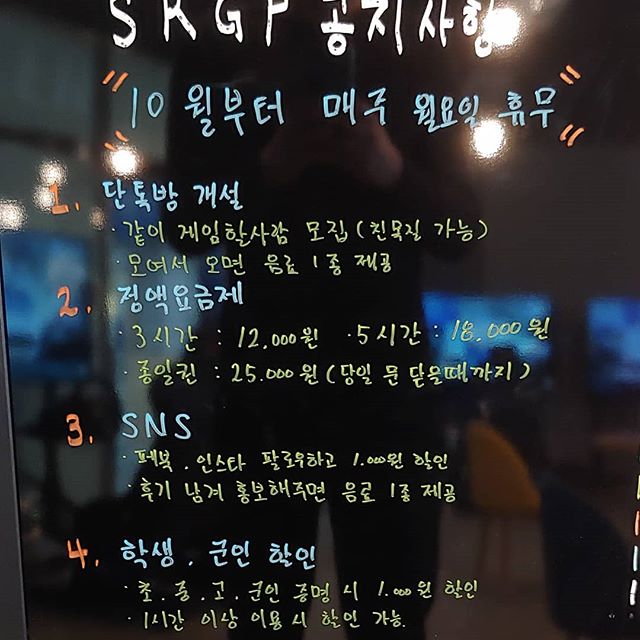 SRGP 공지사항
"10월부터 매주 월요일 휴무"
1. 단톡방 개설
· 같이 게임할사람 모집 (친목질 가능)
· 모여서 오면 음료 1종 제공
2. 정액요금제
· 3시간 : 12,000원 · 5시간 : 18,000원
· 종일권 : 25.000원 (당일 문 닫을때까지)
3. SNS
· 페북. 인스타 팔로우하고 1.000원 할인
· 후기 남겨 홍보해주면 음료 1종 제공
4. 학생. 군인 할인
· 초. 중. 고. 군인 증명 시 1.000원 할인
· 1시간 이상 이용 시 할인 가능.